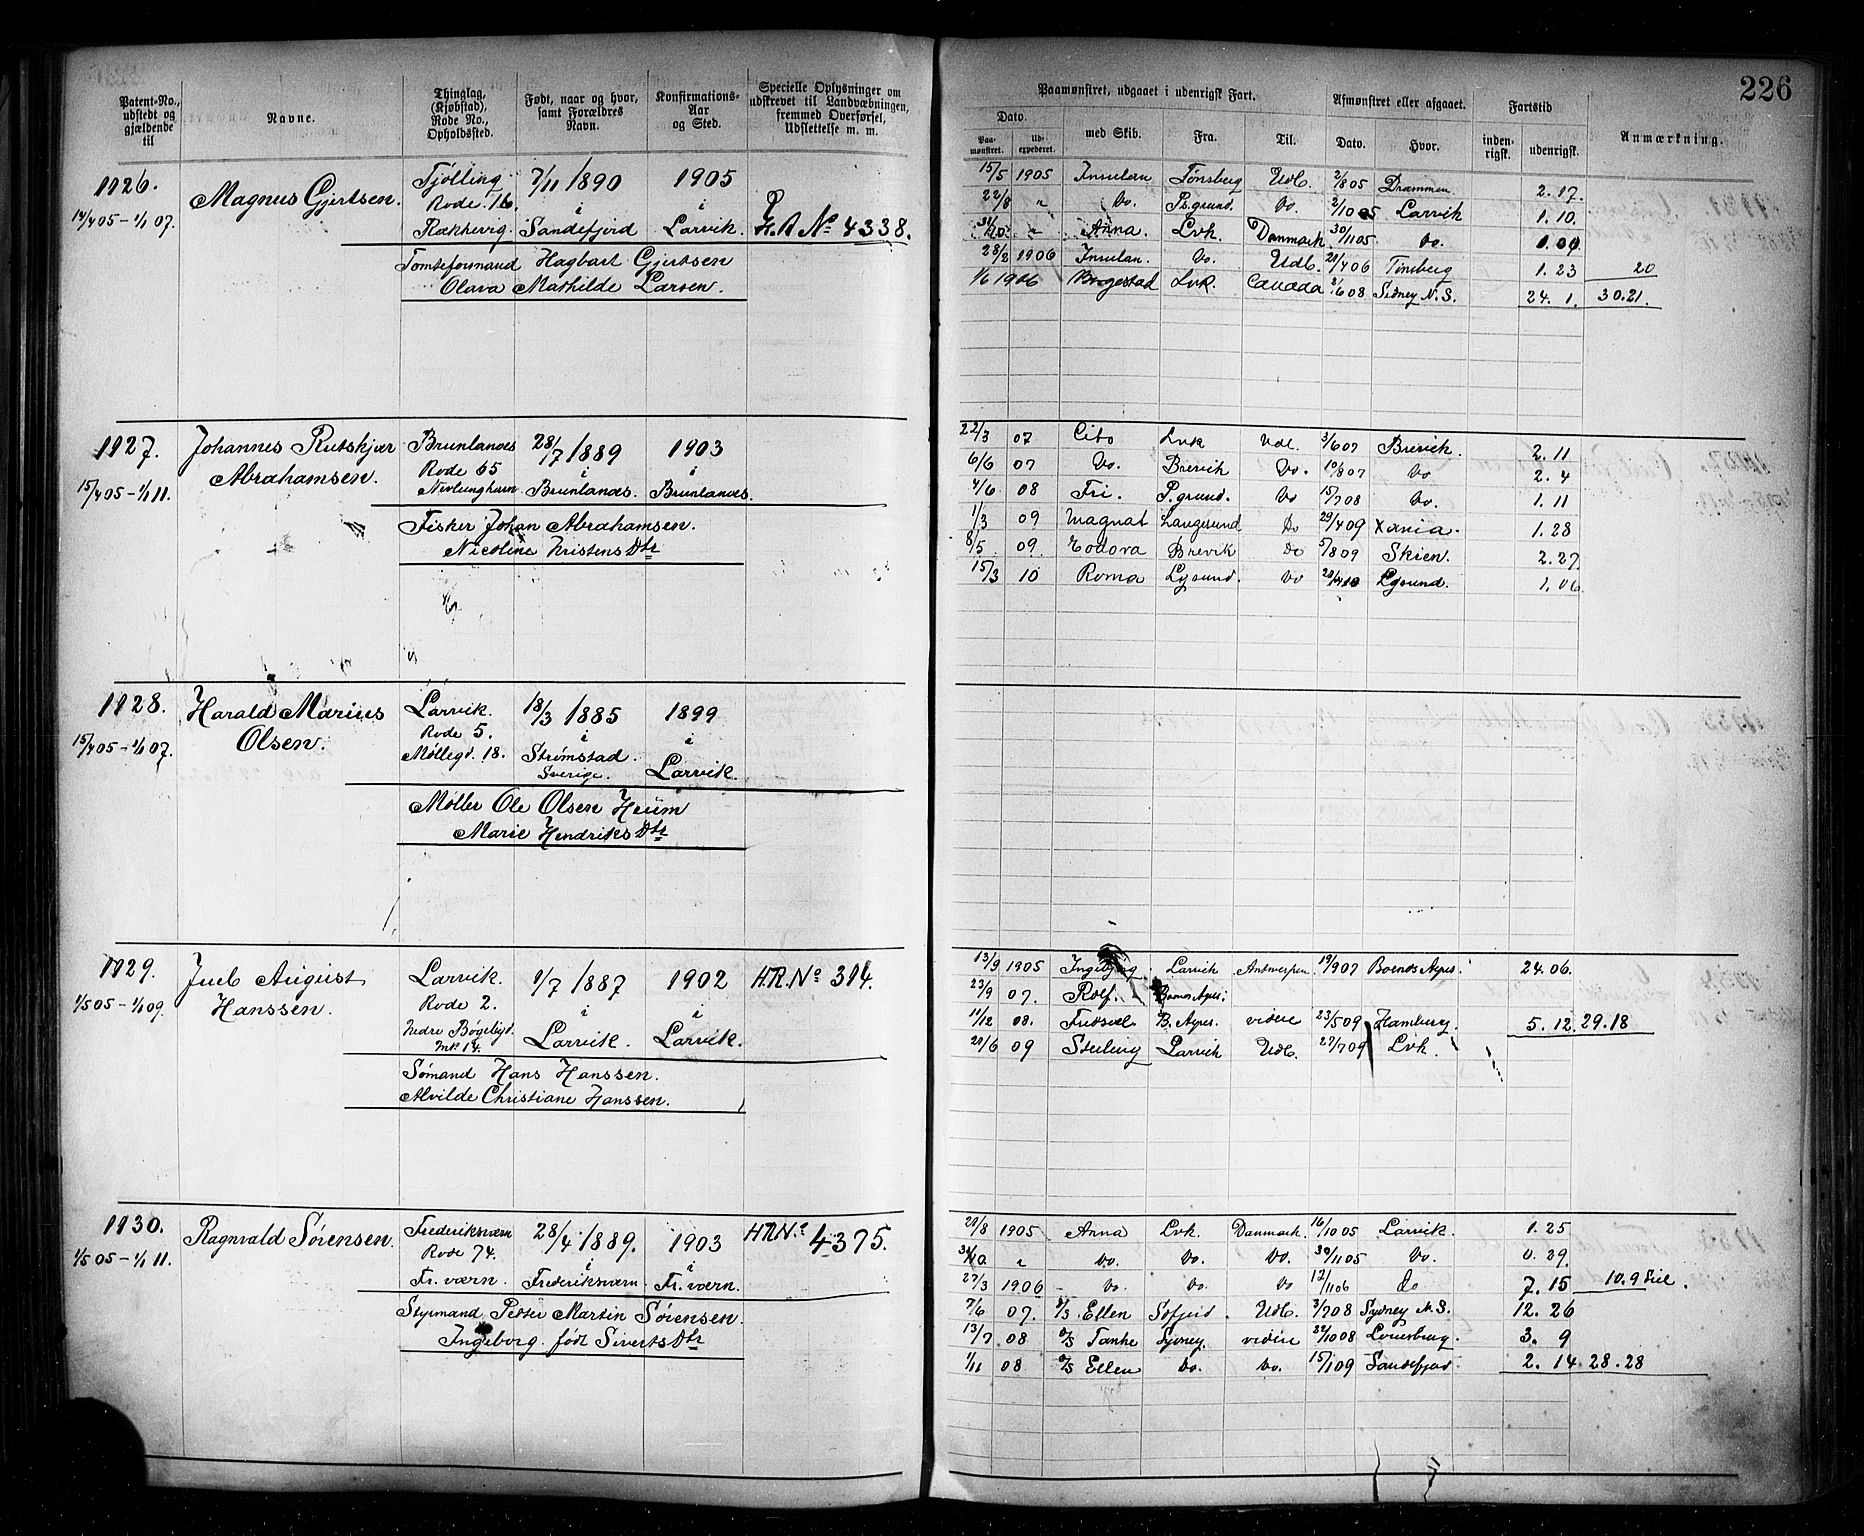 226
Patent-No., udstedt og gjældende til
Navne.
Thinglag, (Kjøbstad), Rode No., Opholdssted.
Født, naar og hvor, samt Forældres Navn.
Konfirmations-Aar og Sted.
Specielle Oplysninger om udskrevet til Landværningen, fremmed Overførsel, Udslettelse m. m.
Paamønstret, udgaaet i udenrigsk Fart.
Afmønstret eller afgaaet.
Fartstid
Anmærkning.
Dato.
Paa-mønstret.
Ud-expederet.
med Skib.
Fra.
Til.
Dato.
Hvor.
inden-rigsk.
udenrigsk.
1126. Magnus Gjertsen. Tjølling 7/11 1890 1905
Rode 16. i i
14/4 05 - 1/1 07. Rækkevig. Sandefjord Larvik. H.R. No 4338.
Tomteformand Hagbart Gjertsen
Olava Mathilde Larsen.
15/5 1905 Insulan Tønsberg Udl. 2/8 05 Drammen 2. 17.
22/8 " Do. Ps.grund. Do. 2/10 05 Larvik 1. 10.
" Anna. Lvk. Danmark 30/11 05 Do.
28/2 1906 Insulan. Do. Udl. 20/4 06 Tønsberg 1. 23 20
1/6 1906 Bogestad Lvk. Canada 3/6 08 Sidney N.S. 24. 1. 30.21.
1127. Johannes Rutskjær Brunlandes 28/7 1889 1903
Abrahamsen. Rode 65 i i
15/4 05 - 1/1 11. Nevlunghavn Brunlandes. Brunlandes.
Fisker Johan Abrahamsen.
Nicoline Kristens Dtr
22/3 07 Cito Lvk Udl 3/6 07 Brevik. 2. 11
6/6 07 Do. Brevik Do. 10/8 07 Do 2. 4
4/6 08 Fri. P.grund. Do 15/7 08 Do. 1. 11
1/3 09 Magnat Langesund Do 29/4 09 Xania. 1. 28
8/5 09. Todova Brevik Do 5/8 09 Skien. 2. 27.
15/3 10 Roma Lgsund. Do Lgsund. 1. 06
1128. Harald Marius Larvik. 18/3 1885 1899
Olsen. Rode 5. i i
15/4 05 - 1/1 07. Møllegd. 18. Strømstad. Larvik.
Sverige.
Møller Ole Olsen Heum
Marie Hendriks Dtr
1129. Juel August Larvik. 1/7 1887 1902 H.R. No 314.
Hanssen. Rode 2. i i
1/5 05 - 1/1 09. Nedre Bøgeligd. Larvik. Larvik.
Mk. 14.
Sømand Hans Hanssen.
Alvilde Christiane Hanssen.
13/9 1905 Ingebjørg Larvik Antwerpen 19/9 07 Boenos Ayres. 24. 06.
23/9 07. Rolf. Buenos Ayres.
11/12 08. Fredsel B. Ayres. videre 23/5 09 Hamburg. 5. 12. 29. 18
20/6 09 Sterling Larvik Udl. 27/7 09 Lvk.
1130. Ragnvald Sørensen. Frederiksværn 28/4 1889. 1903 H.R. No 4375.
Rode 74. i i
1/5 05 - 1/1 11. Fr. værn. Frederiksværn Fr. værn.
Styrmand Petter Martin Sørensen.
Ingeborg født Siverts Dtr
21/8 1905 Anna Lvk. Danmark. 16/10 05 Larvik. 1. 25
" Do. Do. Do. 30/11 05 Do. 0. 29.
27/3 1906 Do. Do. Do 12/11 06 Do 7. 15 10.9 Seil.
7/6 07. S/S Ellen Sdfjord. Udl. 3/7 08 Sydney N.S. 12. 26
13/7 08 S/S Tanke Sydney. videre Louisburg. 3. 9
1/11 08 S/S Ellen Do. Do. 15/1 09 Sandefjord. 2. 14 28.28